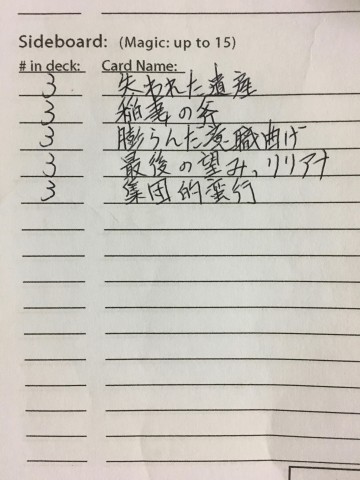 Sideboard: (Magic: up to 15)
# in deck: Card Name:
3 失われた遺産
3 稲妻の斧
3 膨らんだ意識曲げ
3 最後の望み、リリアナ
3 集団的蛮行